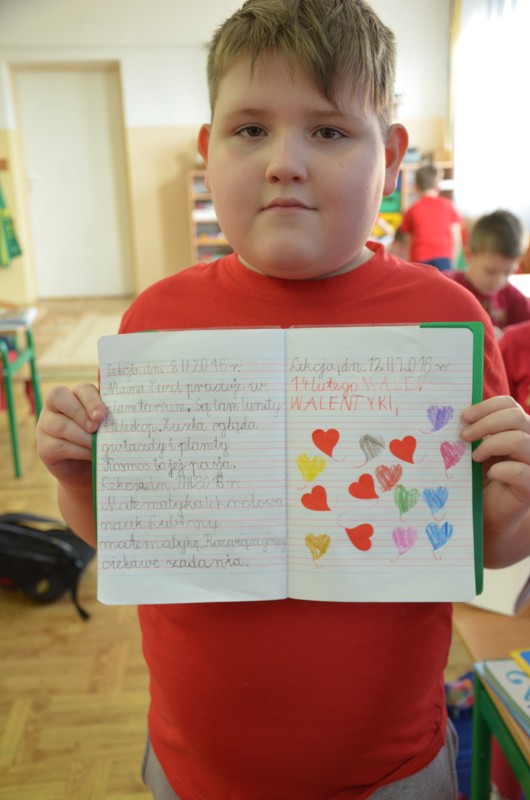 Lekcja, dn. 8.II.2016 r.
Mama Zuzi pracuje w
planetarium. Są tam lunety
i teleskopy. Zuzia ogląda
gwiazdy i planety.
Kosmos to jej pasja.
Lekcja, dn. 11.II.2016 r.
Matematyka to królowa
nauk. Lubimy
matematykę. Rozwiązujemy
ciekawe zadania.
Lekcja, dn. 12.II.2016 r.
14 lutego WALEŻ
WALENTYKI,